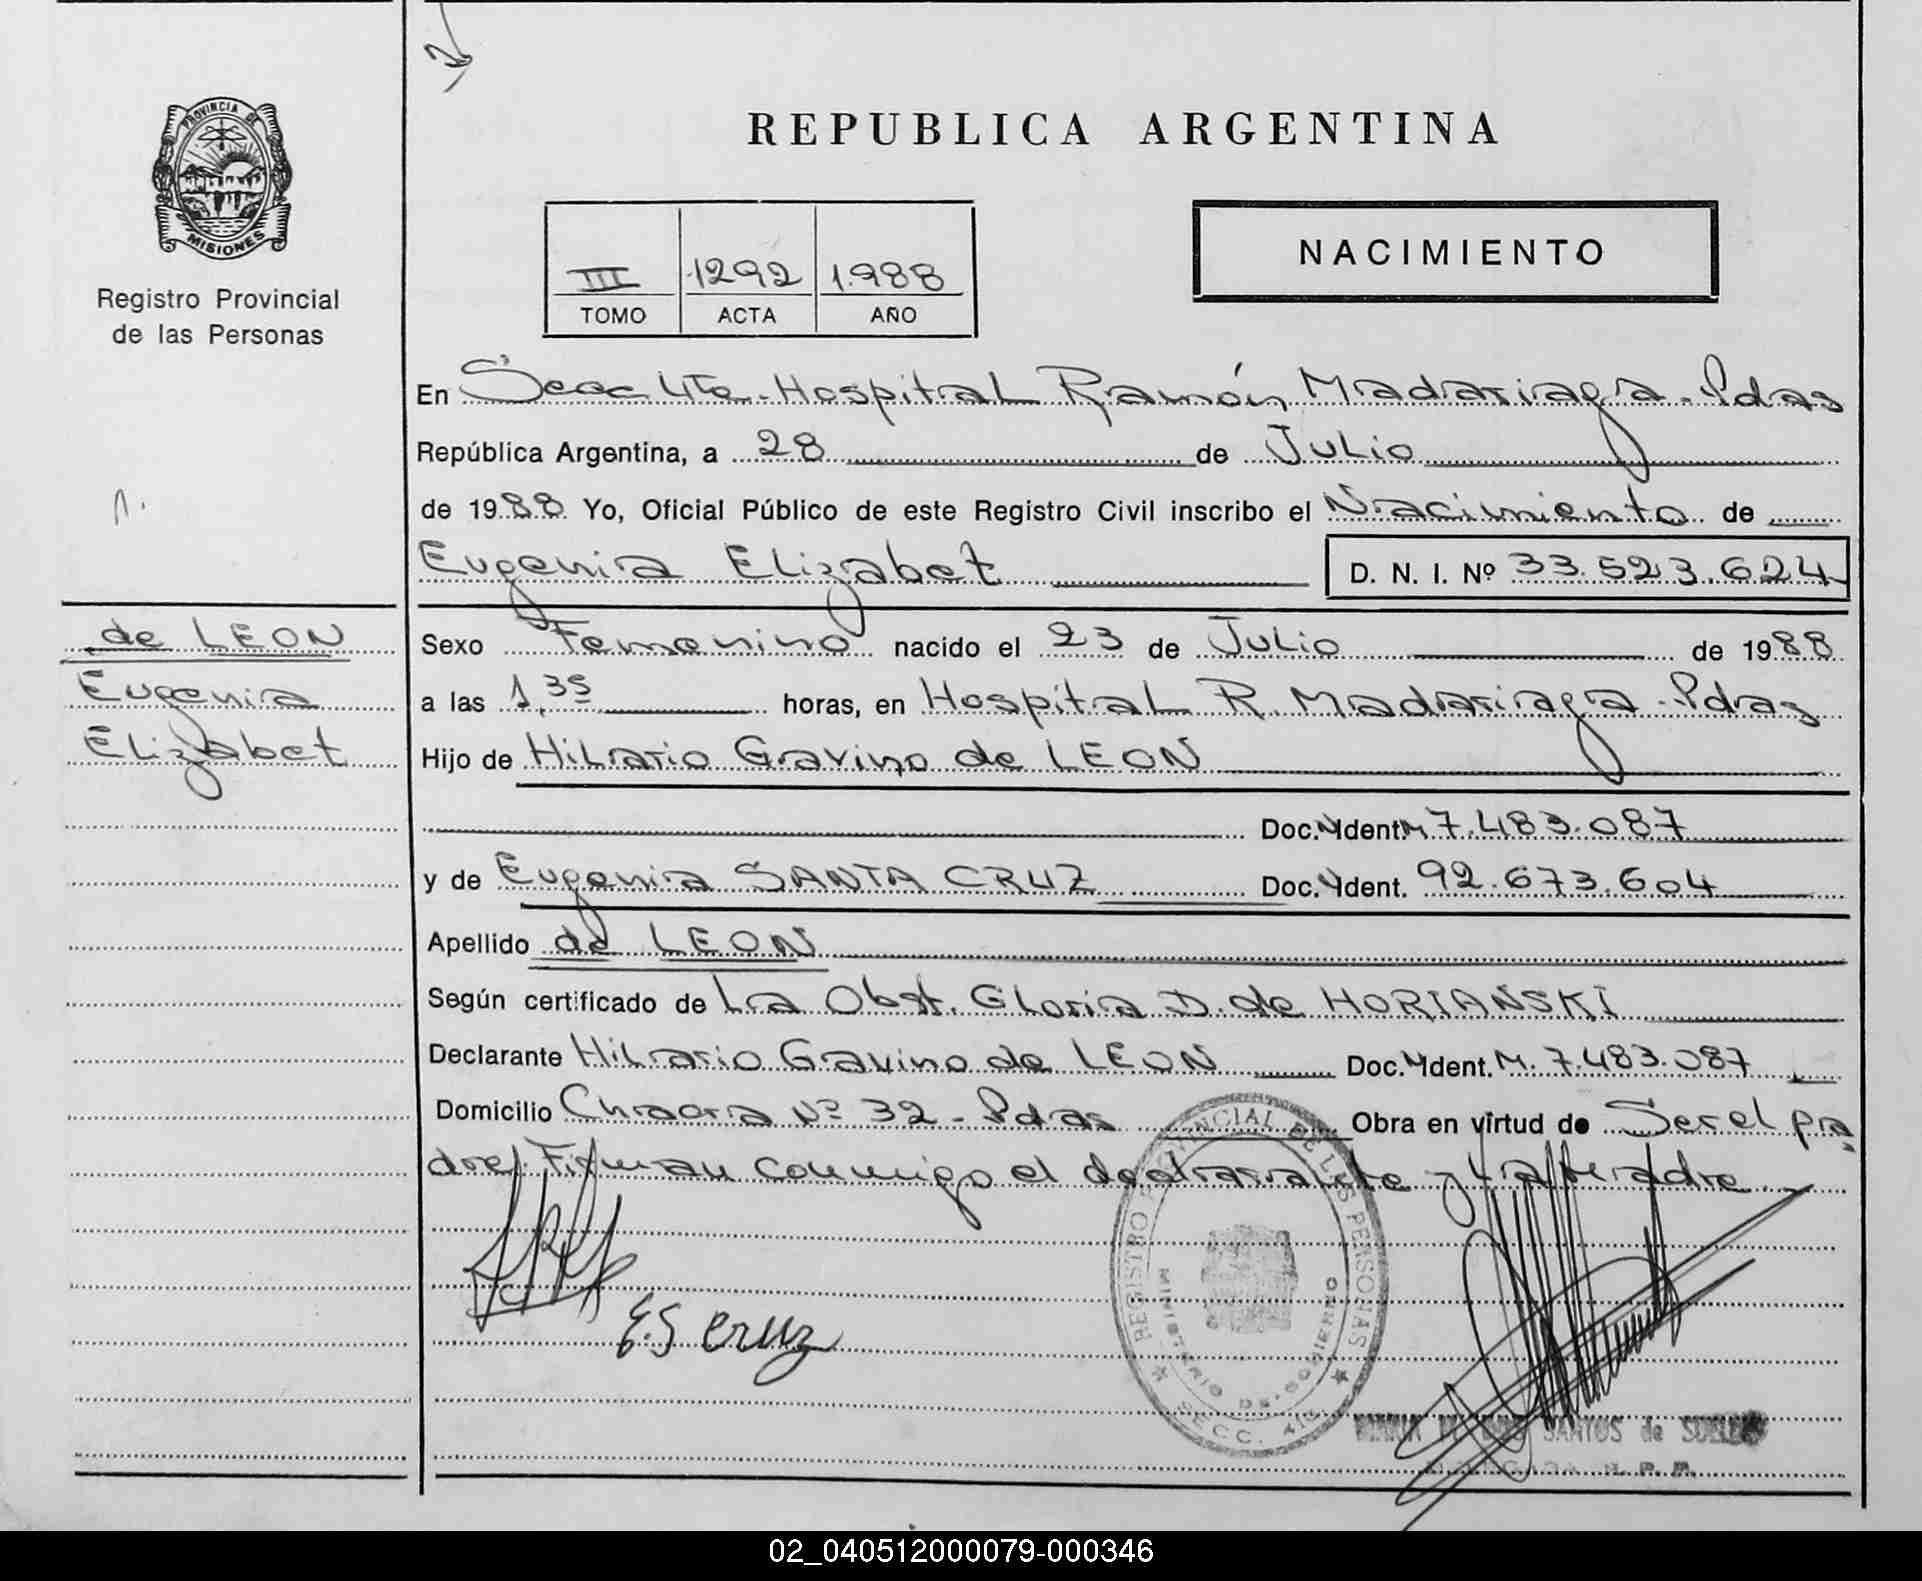 PROVINCIA DE
MISIONES
Registro Provincial
de las Personas
REPUBLICA ARGENTINA
III 1292 1.988
TOMO ACTA AÑO
NACIMIENTO
En Secc 4ta. Hospital Ramón Madariaga - Pdas
República Argentina, a 28 de Julio
de 1988 Yo, Oficial Público de este Registro Civil inscribo el Nacimiento de
Eugenia Elizabet D. N. I. Nº 33.523.624
de LEON
Eugenia
Elizabet
Sexo Femenino nacido el 23 de Julio de 1988
a las 1,35 horas, en Hospital R. Madariaga - Pdas
Hijo de Hilario Gavino de LEON
Doc. Ident. M 7.483.087
y de Eugenia SANTA CRUZ Doc. Ident. 92.673.604
Apellido de LEON
Según certificado de La Obst. Gloria D. de HORIANSKI
Declarante Hilario Gavino de LEON Doc. Ident. M. 7.483.087
Domicilio Chacra Nº 32 - Pdas Obra en virtud de Ser el pa
dre/ Firman conmigo el declarante y La Madre
E. S cruz
REGISTRO PROVINCIAL DE LAS PERSONAS
MINISTERIO DE GOBIERNO
SECC. 4ta
SANTOS de
02_040512000079-000346